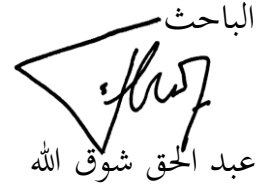 الباحث
عبد الحق شوق الله